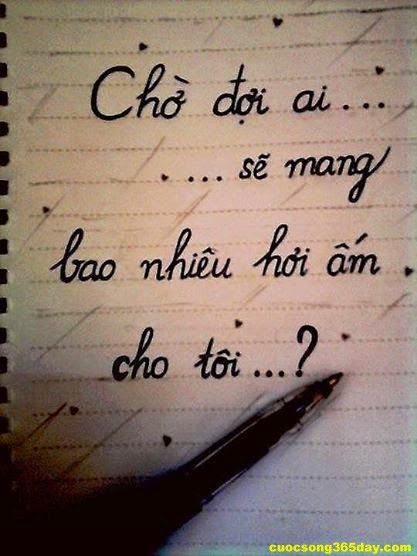 Chờ đợi ai...
... sẽ mang
bao nhiêu hơi ấm
cho tôi ...?
cuocsong365day.com